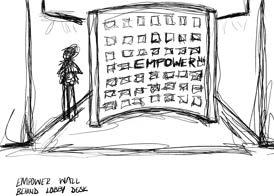 EMPOWER
EMPOWER WALL
BEHIND LOBBY DESK